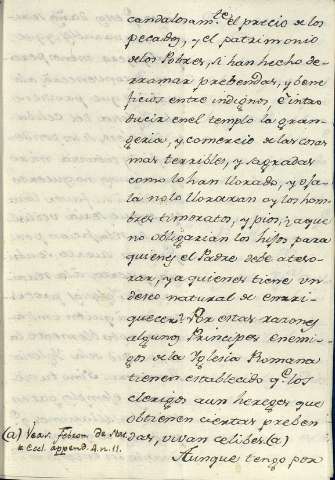 candalosamte. el precio de los
pecados, y el patrimonio
de los Pobres, si han hecho de-
rramar prebendas, y bene
ficios entre indignos, è intro
ducir en el templo la gran-
geria, y comercio de las cosas
mas terribles, y sagradas
como lo han llorado, y oja-
la no lo lloraran oy los hom
bres timoratos, y pios; ¿a que
no obligarian los hijos para
quienes el Padre debe ateso-
rar, y a quienes tiene un
deseo natural de enrri-
quecer? Por estas razones
algunos Principes enemi-
gos de la Yglesia Romana
tienen establecido qe. los
clerigos aun hereges que
obtienen ciertas preben
das, vivan celibes (a)
(a) Veas. Febron de
Eccl. append. 4. n. 11.
Aunque tengo por